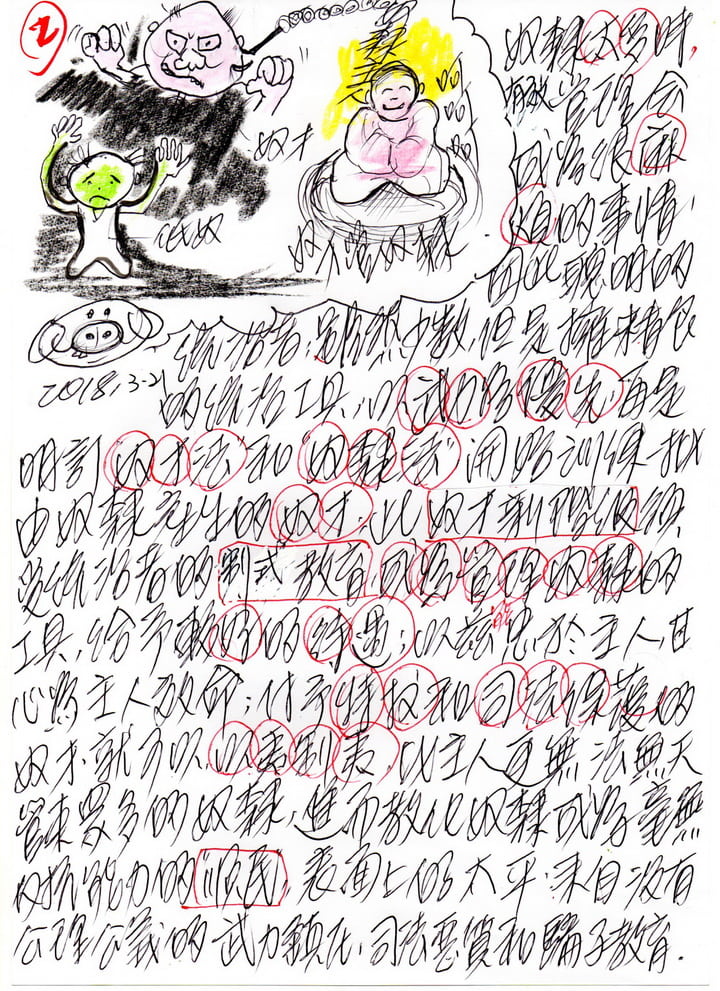 2
奴隸太多時,
管理會
成為很麻
煩的事情,
因此聰明的
奴才
低奴
奴才管奴隸
統治者,雖然少數,但是擁有
2018.3-2
的統治工具,以武力為優先,再是
明訂"奴才法"和"奴隸法"開始訓練一批
由奴隸產生的奴才,此奴才新階級須
受統治者的制式教育,成為管理奴隸的
工具,給予較好的待遇;以效忠於主人,甘
心為主人效命;付予特權和司法保護的
奴才,就可以以奴制奴,此主人可無法無天
管束眾多的奴隸,進而教化奴隸成為毫無
反抗能力的"順民",表面上的太平,來自沒有
公理公義的武力鎮壓、司法惡質和騙子教育.